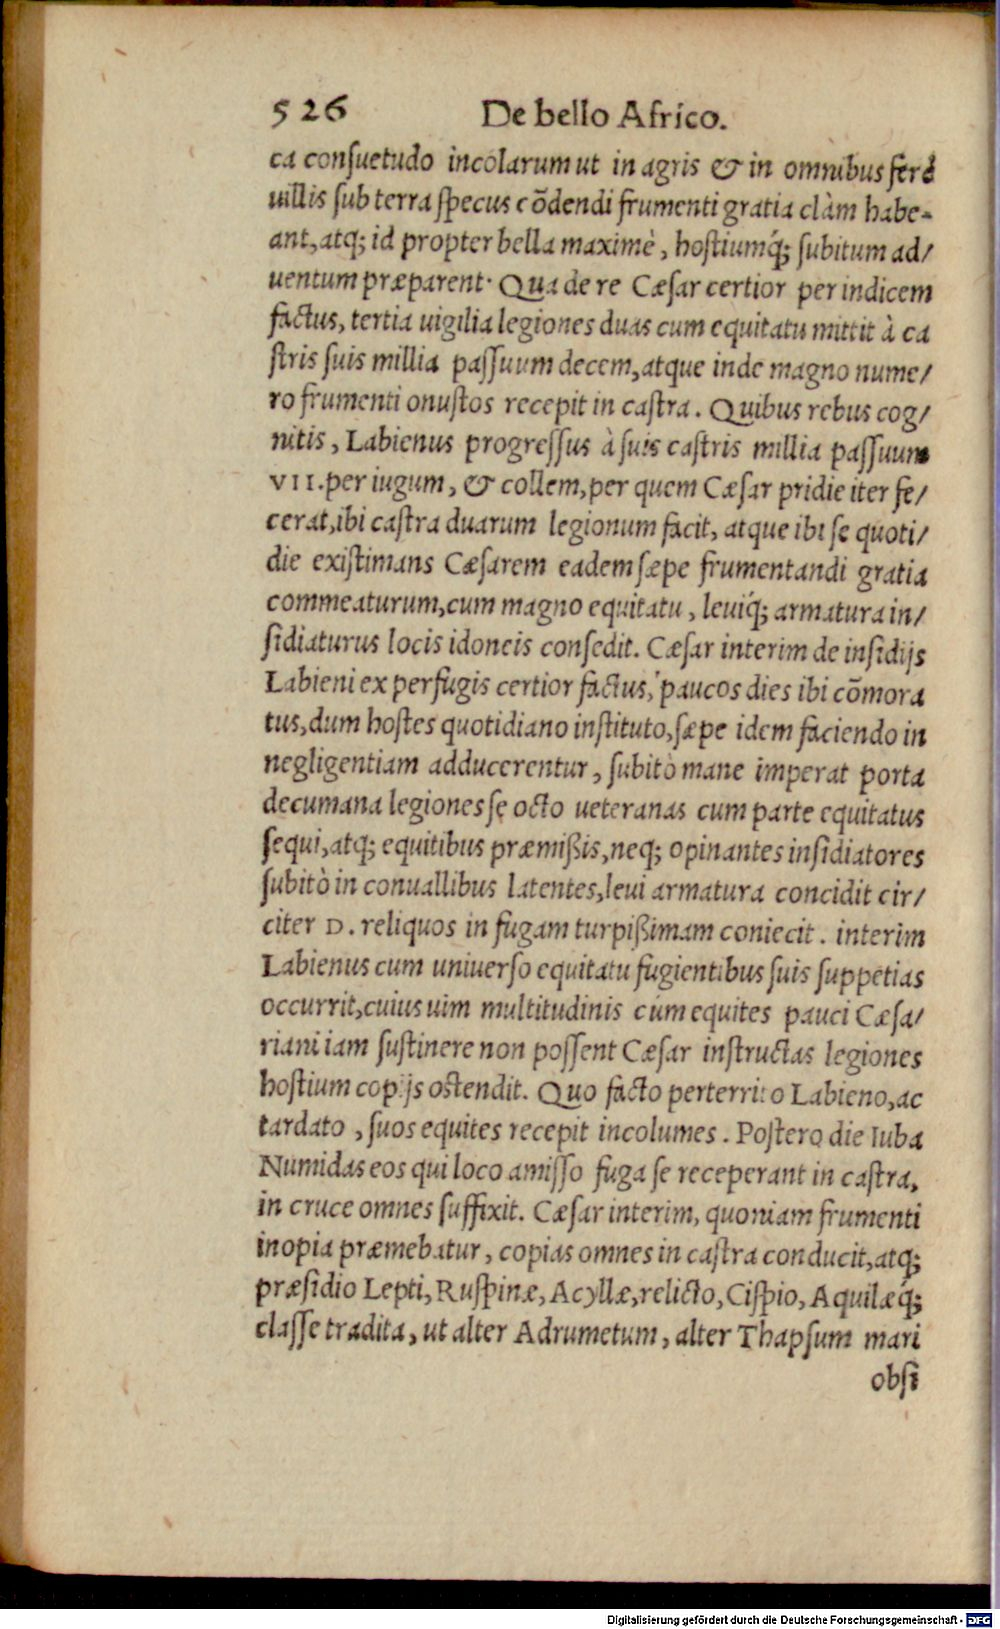 526 De bello Africo.
ca conſuetudo incolarum ut in agris & in omnibus ferè
uillis ſub terra ſpecus cõdendi frumenti gratia clàm habe-
ant, atq; id propter bella maximè, hoſtiumq́; ſubitum ad/
uentum præparent. Qua de re Cæſar certior per indicem
factus, tertia uigilia legiones duas cum equitatu mittit à ca
ſtris ſuis millia paſſuum decem, atque inde magno nume/
ro frumenti onuſtos recepit in caſtra. Quibus rebus cog/
nitis, Labienus progreſſus à ſuis caſtris millia paſſuum
VII. per iugum, & collem, per quem Cæſar pridie iter fe/
cerat, ibi caſtra duarum legionum facit, atque ibi ſe quoti/
die exiſtimans Cæſarem eadem ſæpe frumentandi gratia
commeaturum, cum magno equitatu, leuiq́; armatura in/
ſidiaturus locis idoneis conſedit. Cæſar interim de inſidijs
Labieni ex perfugis certior factus, paucos dies ibi cõmora
tus, dum hoſtes quotidiano inſtituto, ſæpe idem faciendo in
negligentiam adducerentur, ſubitò mane imperat porta
decumana legiones ſe octo ueteranas cum parte equitatus
ſequi, atq; equitibus præmißis, neq; opinantes inſidiatores
ſubitò in conuallibus latentes, leui armatura concidit cir/
citer D. reliquos in fugam turpißimam coniecit. interim
Labienus cum uniuerſo equitatu fugientibus ſuis ſuppetias
occurrit, cuius uim multitudinis cùm equites pauci Cæſa/
riani iam ſuſtinere non poſſent Cæſar inſtructas legiones
hoſtium copijs oſtendit. Quo facto perterrito Labieno, ac
tardato, ſuos equites recepit incolumes. Poſtero die Iuba
Numidas eos qui loco amiſſo fuga ſe receperant in caſtra,
in cruce omnes ſuffixit. Cæſar interim, quoniam frumenti
inopia præmebatur, copias omnes in caſtra conducit, atq;
præſidio Lepti, Ruſpinæ, Acyllæ, relicto, Ciſpio, Aquilæq́;
claſſe tradita, ut alter Adrumetum, alter Thapſum mari
obſi
Digitalisierung gefördert durch die Deutsche Forschungsgemeinschaft - DFG